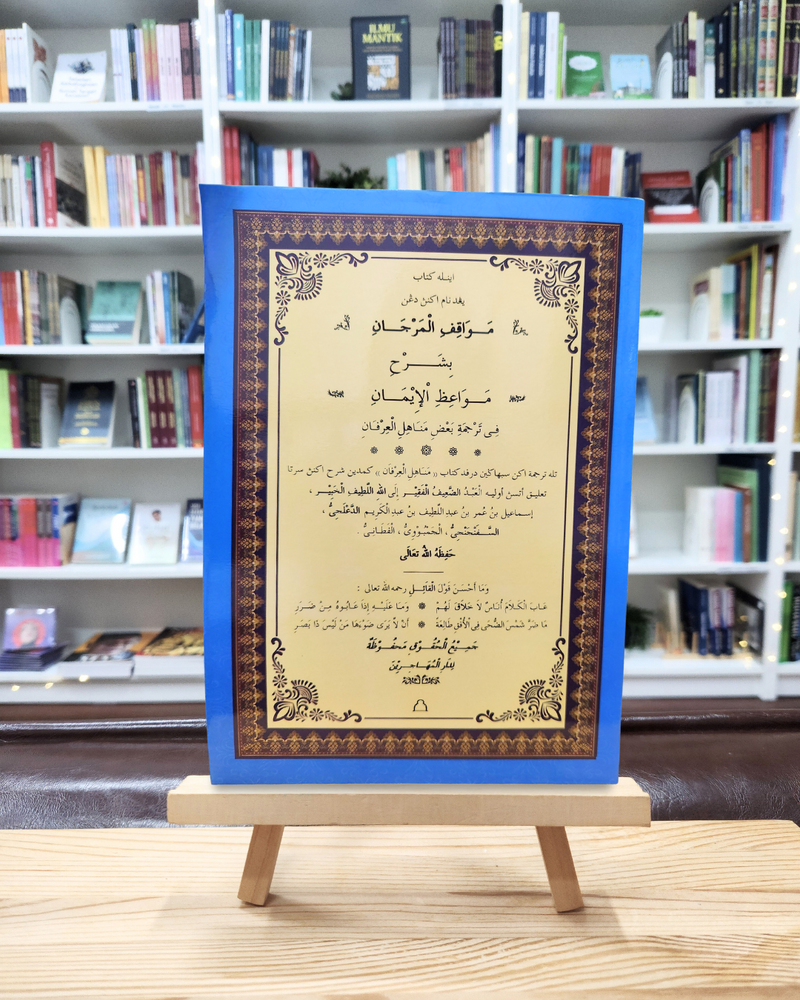 ILMU
MANTIK
اينله كتاب
يڠد نام اكندي دڠن
مَوَاقِفِ الْمَرْجَانِ
بِشَـرْحِ
مَوَاعِظِ الْإِيْمَانِ
فِى تَرْجَمَةِ بَعْضِ مَنَاهِلِ الْعِرْفَانِ
تله ترجمة اكن سبهاݢين درفد كتاب ((مَنَاهِلِ الْعِرْفَان)) كمدين شرح اكندي سرتا
تعليق أتسن أوليه الْعَبْدُ الضَّعِيفُ الْفَقِيْر إِلَى اللهِ اللَّطِيفِ الْخَبِيْر ،
إسماعيل بنُ عُمر بنُ عبدِ اللطيف بنُ عبدِ الْكَرِيمِ
حَفِظَهُ اللهُ تَعَالَى
وَمَا أَحْسَنَ قَوْلَ الْقَائِلِ رحمه الله تعالى :
عَابَ الْكَلَامَ أُنَاسٌ لَا خَلَاقَ لَهُمْ ۞ وَمَا عَلَيْهِ إِذَا عَابُوهُ مِنْ ضَرَرِ
مَا ضَرَّ شَمْسَ الضُّحَى فِى الْأُفْقِ طَالِعَةً ۞ أَنْ لَا يَرَى ضَوْءَهَا مَنْ لَيْسَ ذَا بَصَرِ
جَمِيْعُ الْحُقُوْقِ مَحْفُوْظَةٌ
لِدَارِ الْمُهَاجِرِيْنَ